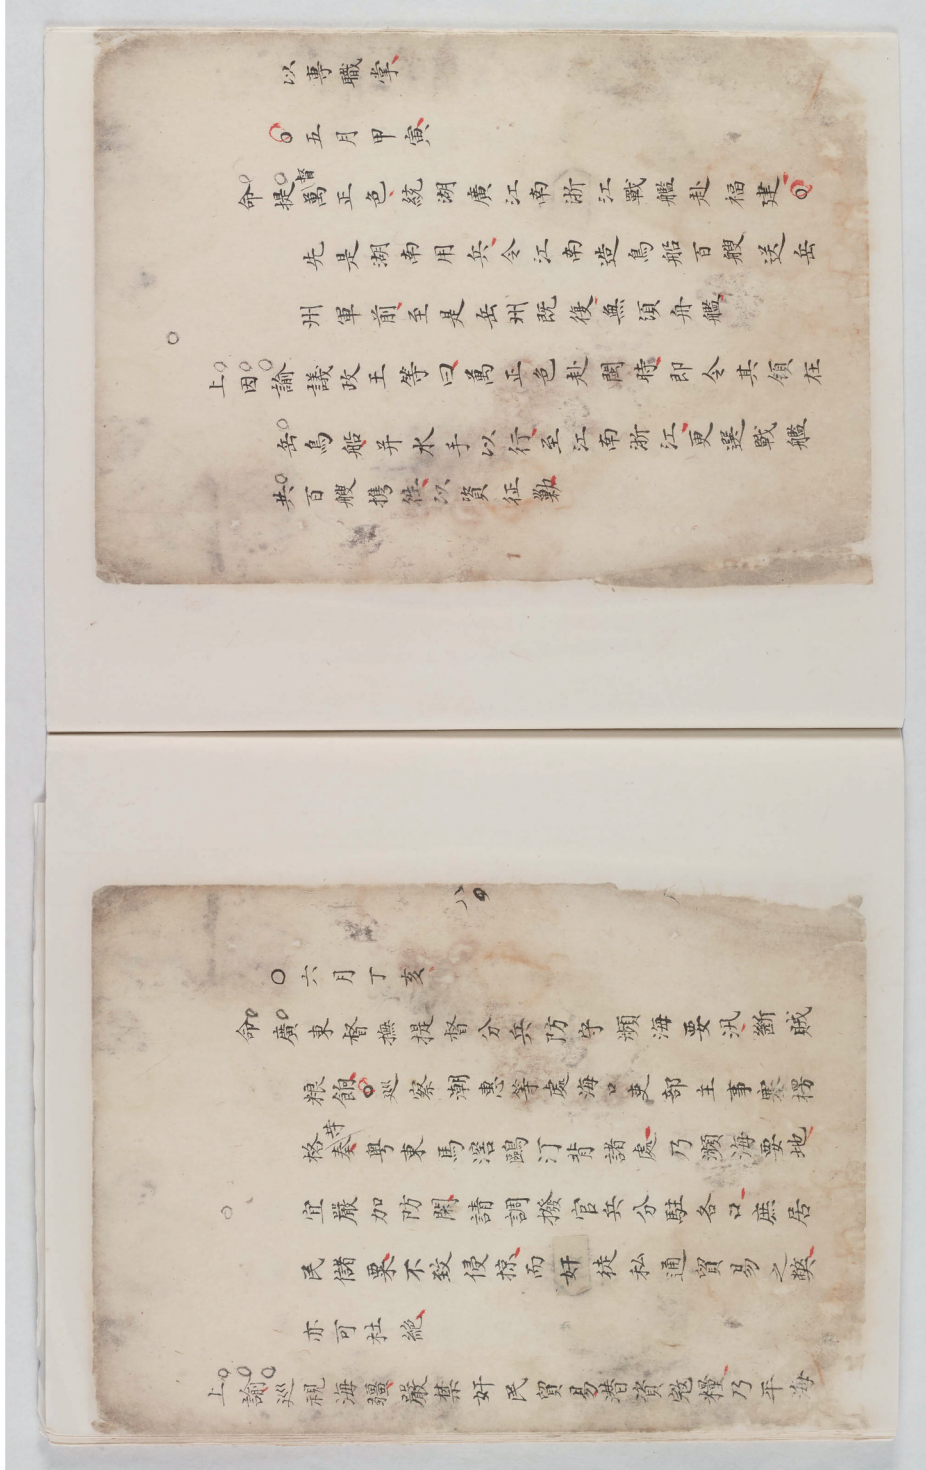 以專職掌
五月甲寅
命提督萬正色統湖廣江南浙江戰艦赴福建
先是湖南用兵令江南造鳥船百艘送岳
州軍前至是岳州既復無須舟艦
上因諭議政王等曰萬正色赴閩時即令其領在
岳鳥船并水手以行至江南浙江更選戰艦
共百艘携往以資征勦
八
六月丁亥
命廣東督撫提督分兵防守瀕海要汛斷賊
粮餉巡察潮惠等處海口吏部主事塞楞
格等奏粵東馬滘鷗汀背諸處乃瀕海要地
宜嚴加防閑請調撥官兵分駐各口庶居
民儲粟不致侵掠而奸徒私通貿易之弊
亦可杜絕
上諭巡視海疆嚴禁奸民貿易潛資寇糧乃平海